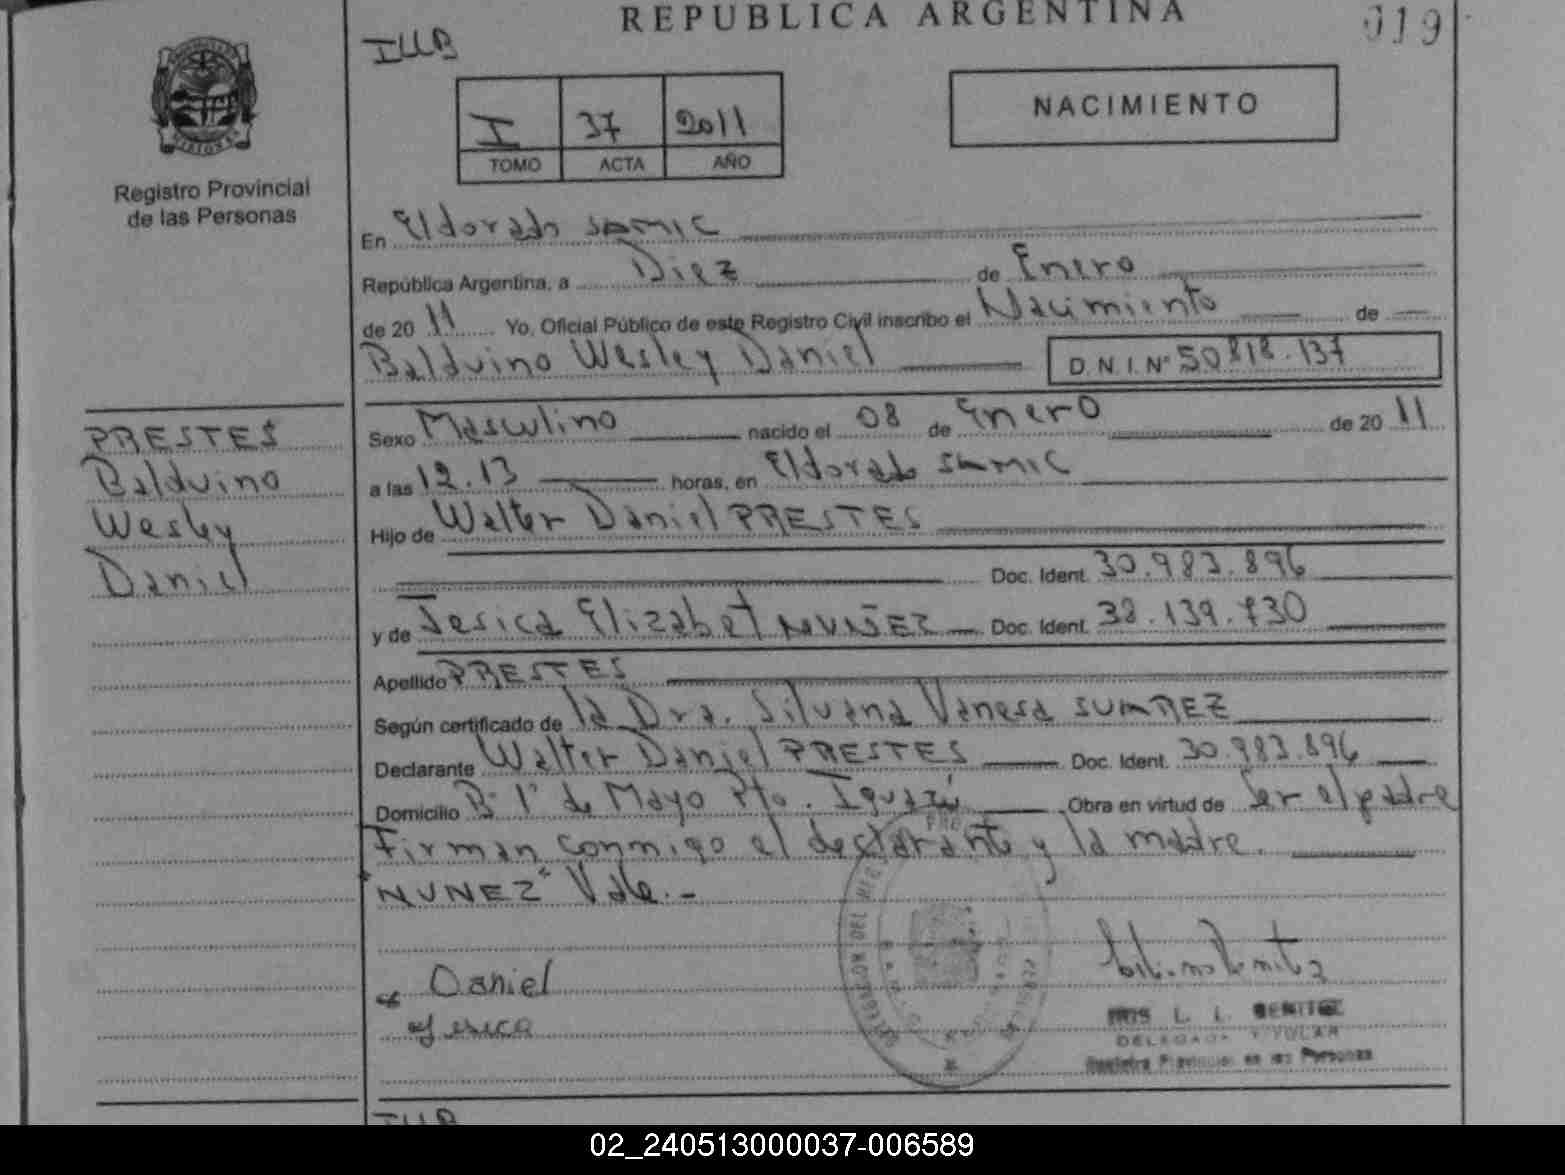 REPUBLICA ARGENTINA
019
I
37
2011
TOMO
ACTA
AÑO
NACIMIENTO
Registro Provincial
de las Personas
En Eldorado SAMIC
República Argentina, a Diez de Enero
de 20 11 Yo, Oficial Público de este Registro Civil inscribo el Nacimiento de
Balduino Wesley Daniel D.N.I. Nº 50818.137
PRESTES
Balduino
Wesley
Daniel
Sexo Masculino nacido el 08 de Enero de 20 11
a las 12.13 horas, en Eldorado SAMIC
Hijo de Walter Daniel PRESTES
Doc. Ident. 30.983.896
y de Jesica Elizabet NUÑEZ Doc. Ident. 38.139.730
Apellido PRESTES
Según certificado de la Dra. Silvana Vanesa SUAREZ
Declarante Walter Daniel PRESTES Doc. Ident. 30.983.896
Domicilio Bº 1º de Mayo Pto. Iguazú Obra en virtud de ser el padre
Firman conmigo el declarante y la madre.
"NUNEZ" Vale.-
Daniel
Jesica
L. I. BENITEZ
DELEGADA TITULAR
Registro Provincial de las Personas
02_240513000037-006589